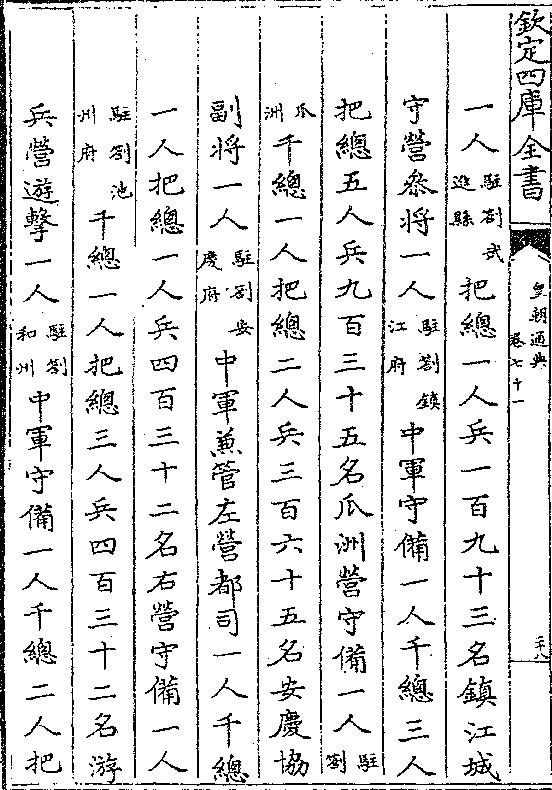 欽定四庫全書
皇朝通典
卷七十一
二十八
一人駐劄武進縣把總一人兵一百九十三名鎮江城
守營叅將一人駐劄鎮江府中軍守備一人千總三人
把總五人兵九百三十五名瓜洲營守備一人駐劄
瓜洲千總一人把總二人兵三百六十五名安慶協
副将一人駐劄安慶府中軍兼管左營都司一人千總
一人把總一人兵四百三十二名右營守備一人
駐劄池州府千總一人把總三人兵四百三十二名游
兵營遊擊一人駐劄和州中軍守備一人千總二人把